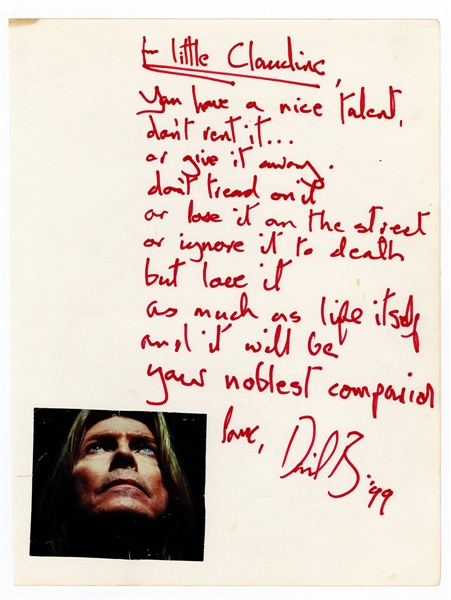 to little Claudine,
You have a nice talent,
don't rent it...
or give it away.
don't tread on it
or lose it on the street
or ignore it to death
but love it
as much as life itself
and it will be
your noblest companion
love,
David B. '99